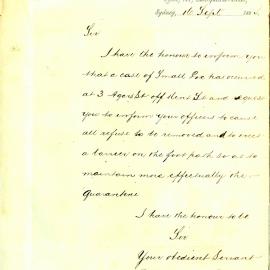 Sydney, 16 Sept 188
Sir
I have the honour to inform you
that a case of Small Pox has occurred
at 3 Agars St off Kent St and request
you to inform your officers to cause
all refuse to be removed and to erect
a barrier on the foot path so as to
maintain more effectually the
Quarantine
I have the honour to be
Sir
Your obedient Servant